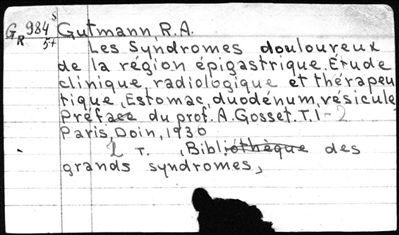 GR 984 s/57 Gutmann, R.A.
Les Syndromes douloureux
de la région épigastrique. Etude
clinique, radiologique et thérapeu
tique, Estomac, duodénum, vésicule
Préface du prof. A. Gosset. T. 1-2
Paris, Doin, 1930
2 T. , Bibliothèque des
grands syndromes,